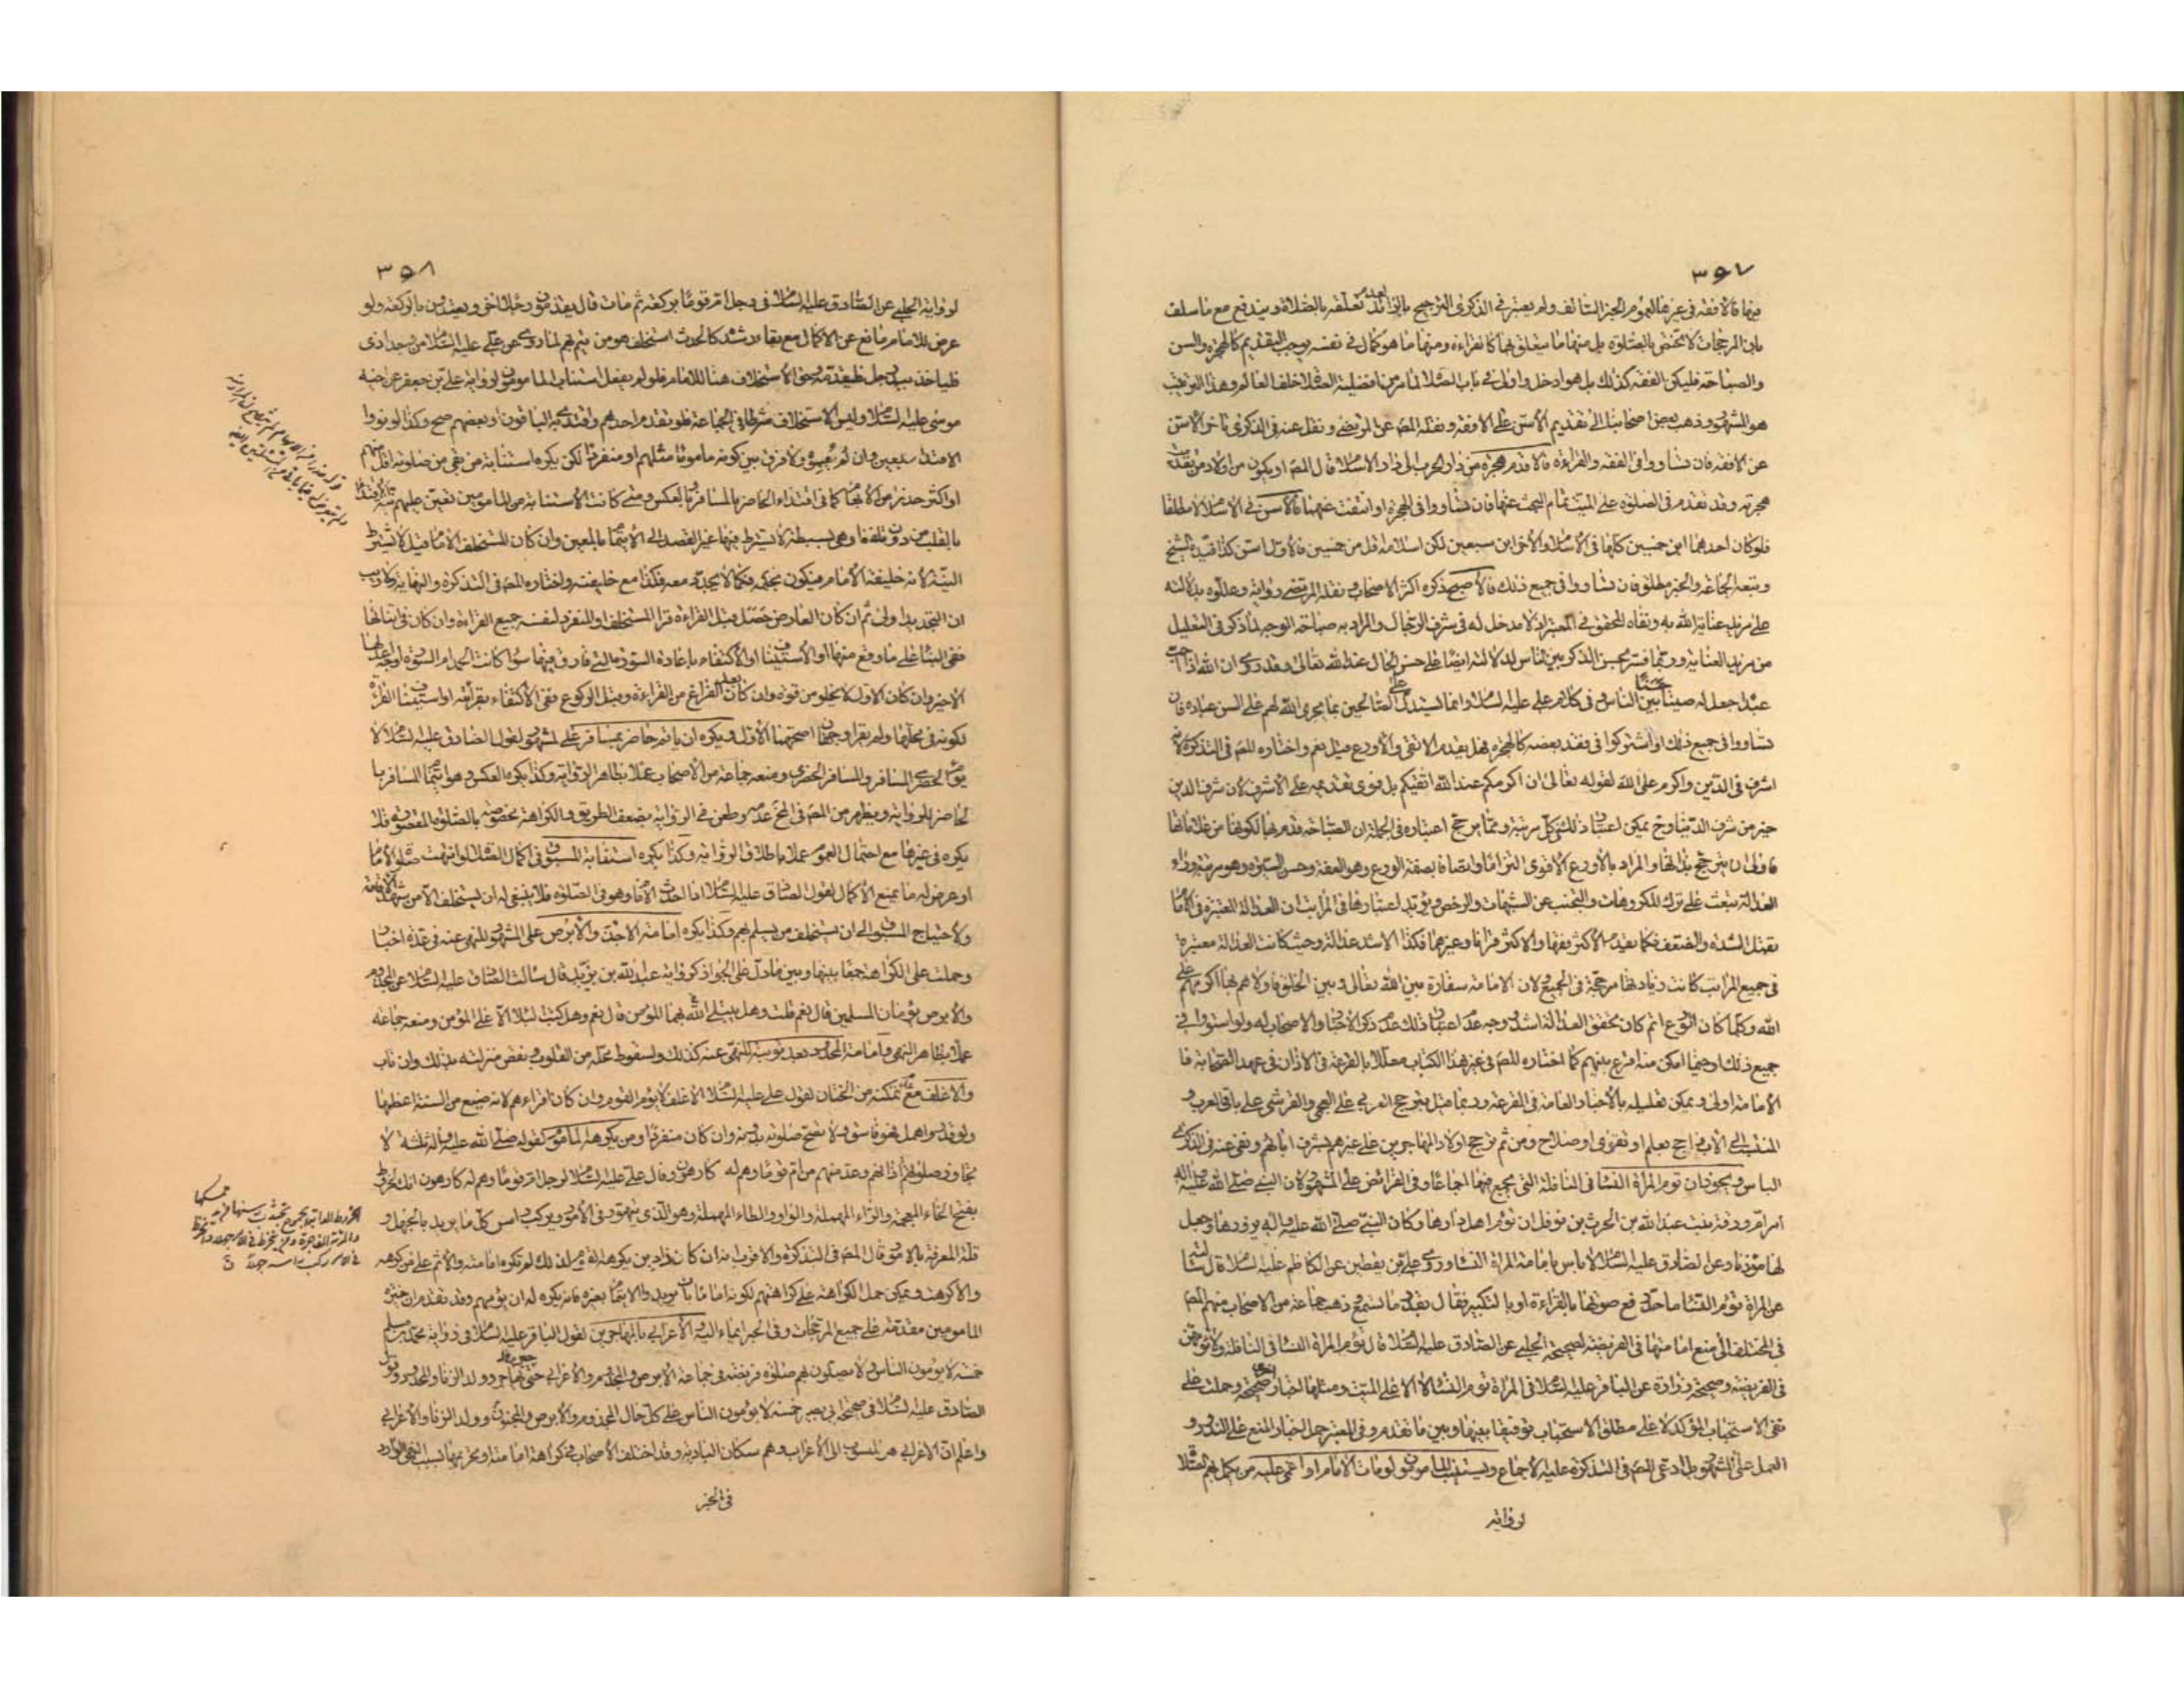 ٣٥٧
منها فالافقه في غيرها لعموم الخبر السالف ولم يعتبر في الذكرى الترجيح بالزائد لعدم تعلقه بالصلاة ويندفع مع ما سلف
بان المرجحات لا تختص بالصلوة بل منها ما يتعلق بها كالقراءة ومنها ما هو كمال في نفسه يوجب التقديم كالهجرة والسن
والصباحة فليكن الفقه كذلك بل هو ادخل واولى في باب الصلاة لما مر من افضلية الصلاة خلف العالم وهذا الترتيب
هو المشهور وذهب بعض اصحابنا الى تقديم الاسن على الافقه ونقله المص عن المرتضى ونقل عنه في الذكرى تاخر الاسن
عن الافقه فان تساووا في الفقه والقراءة فالاقدم هجرة من دار الحرب الى دار الاسلام قال المص او يكون من اولاد من تقدمت
هجرته وقد تقدم في الصلوة على الميت تمام البحث عنها فان تساووا في الهجرة او انتفت عنهما فالاسن في الاسلام لا مطلقا
فلو كان احدهما ابن خمسين كلها في الاسلام والاخر ابن سبعين لكن اسلامه اقل من خمسين فالاول اسن كذا قيده الشيخ
وتبعه الجماعة والخبر مطلق فان تساووا في جميع ذلك فالاصبح ذكره اكثر الاصحاب ونقله المرتضى رواية وعللوه بدلالته
على مزيد عناية الله به ونفاه المحقق في المعتبر اذ لا مدخل له في شرف الرجال والمراد به صباحة الوجه لما ذكر في التعليل
من مزيد العناية وربما فسر بحسن الذكر بين الناس لدلالته ايضا على حسن الحال عند الله تعالى وقد روى ان الله اذا احب
عبدا جعل له صيتا حسنا بين الناس وفي كلام علي عليه السلام وانما يستدل على الصالحين بما يجري الله لهم على السن عباده فان
تساووا في جميع ذلك او اشتركوا في فقد بعضه كالهجرة فهل يقدم الاتقى والاورع قيل نعم واختاره المص في التذكرة لانه
اشرف في الدين واكرم على الله لقوله تعالى ان اكرمكم عند الله اتقيكم بل قوى تقديمه على الاشرف لان شرف الدين
خير من شرف الدنيا وح يمكن اعتبار ذلك في كل مرتبة ومما يرجح اعتباره في الجملة ان الصباحة قدم بها لكونها من علاماتها
فاولى ان يترجح بذاتها والمراد بالاورع الاقوى التزاما واتصافا بصفة الورع وهو العفة وحسن السيرة وهو مرتبة وراء
العدالة تبعث على ترك المكروهات والتجنب عن الشبهات والرخص ويؤيد اعتبارها في المراتب ان العدالة المعتبرة في الامام
تقبل الشدة والضعف فكما يقدم الاكثر فقها والاكثر قرانا وغيرهما فكذا الاشد عدالة وحيث كانت العدالة معتبرة
في جميع المراتب كانت زيادتها مرجحة في الجميع لان الامامة سفارة بين الله تعالى وبين الخلق فاولاهم بها اكرمهم على
الله وكلما كان الورع اتم كان تحقق العدالة اشد ووجه عدم اعتبار ذلك عدم ذكر الاخبار والاصحاب له ولو استووا في
جميع ذلك او حيثما امكن منه اقرع بينهم كما اختاره المص في غير هذا الكتاب معللا بالقرعة في الاذان في عهد الصحابة فا
لامامة اولى ويمكن تعليله بالاخبار العامة في القرعة وربما قيل بترجيح العربي على العجمي والقرشي على باقي العرب و
المنتسب الى الاب الراجح بعلم او تقوى او صلاح ومن ثم ترجح اولاد المهاجرين على غيرهم بشرف ابائهم ونفى عنه في الذكرى
الباس ويجوز ان تؤم المراة النسا في النافلة التي يجمع فيها اجماعا وفي الفرائض على المشهور لان النبي صلى الله عليه واله
امر ام ورقة بنت عبد الله بن الحرث بن نوفل ان تؤم اهل دارها وكان النبي صلى الله عليه واله يزورها وجعل
لها مؤذنا وعن الصادق عليه السلام لا باس بامامة المراة النسا وروى علي بن يقطين عن الكاظم عليه السلام قال سالته
عن المراة تؤم النسا ما حد رفع صوتها بالقراءة او بالتكبير فقال بقدر ما تسمع وذهب جماعة من الاصحاب منهم المص
في المختلف الى منع امامتها في الفريضة لصحيحة الحلبي عن الصادق عليه السلام قال تؤم المراة النسا في النافلة ولا تؤمهن
في الفريضة وصحيحة زرارة عن الباقر عليه السلام في المراة تؤم النسا قال لا الا على الميت ومثلها اخبار اخرى صحيحة وحملت على
نفي الاستحباب المؤكد لا على مطلق الاستحباب توفيقا بينها وبين ما تقدم وفي المعتبر حمل اخبار المنع على الندور و
العمل على المشهور بل ادعى المص في التذكرة عليه الاجماع ويستنيب المامومون لو مات الامام او اغمي عليه من يكمل بهم الصلاة
لرواية
٣٥٨
لرواية الحلبي عن الصادق عليه السلام في رجل ام قوما بركعة ثم مات قال يقدمون رجلا اخر ويعتدون بالركعة ولو
عرض للامام مانع عن الاكمال مع بقاء رشده كالحدث استخلف هو من يتم بهم لما روى عن علي عليه السلام من وجد اذى
فلياخذ بيد رجل فليقدمه وحق الاستخلاف هنا للامام فلو لم يفعل استناب المامومون لرواية علي بن جعفر عن اخيه
موسى عليه السلام وليس الاستخلاف شرطا في الجماعة فلو تقدم احدهم واقتدى به الباقون او بعضهم صح وكذا لو نووا
الاقتداء بمعين وان لم يعينه ولا فرق بين كونه ماموما مثلهم او منفردا لكن يكره استنابة من بقي من صلوته اقل منهم
او اكثر حذرا من الانتظار كما في اقتداء الحاضر بالمسافر وبالعكس ومتى كانت الاستنابة من المامومين تعين عليهم نية الاقتداء
بالقلب من دون تلفظ وهي بسيطة لا يشترط فيها غير القصد الى الايتمام بالمعين وان كان المستخلف الامام قيل لا يشترط
النية لانه خليفة الامام فيكون بحكمه فكما لا يجدد معه فكذا مع خليفته واختاره المص في التذكرة والنهاية ولا ريب
ان التجديد اولى ثم ان كان العارض حصل قبل القراءة قرا المستخلف او المنفرد لنفسه جميع القراءة وان كان في اثنائها
ففي البناء على ما وقع منها او الاستيناف او الاكتفاء باعادة السورة التي فارق فيها سواء كانت الحمد ام السورة اوجه اعدلها
الاخير وان كان الاول لا يخلو من قوة وان كان بعد الفراغ من القراءة وقبل الركوع ففي الاكتفاء بقرائته او استيناف القراءة
لكونه في محلها ولم يقرا وجهان اصحهما الاول ويكره ان ياتم حاضر بمسافر على المشهور لقول الصادق عليه السلام لا
يؤم الحضري المسافر ولا المسافر الحضري ومنعه جماعة من الاصحاب عملا بظاهر الرواية وكذا يكره العكس وهو ايتمام المسافر با
لحاضر للرواية ويظهر من المص في المخ عدمه وطعن في الرواية بضعف الطريق والكراهة مخصوصة بالصلوة المقصورة فلا
يكره في غيرها مع احتمال العموم عملا باطلاق الرواية وكذا يكره استنابة المسبوق في اكمال الصلاة لو انتهت صلوة الامام
او عرض له ما يمنع الاكمال لقول الصادق عليه السلام اذا احدث الامام وهو في الصلوة فلا ينبغي له ان يستخلف الا من شهد الاقامة
ولاحتياج المسبوق الى ان يستخلف من يسلم بهم وكذا يكره امامة الاجذم والابرص على المشهور للنهي عنه في عدة اخبار
وحملت على الكراهة جمعا بينها وبين ما دل على الجواز كرواية عبد الله بن يزيد قال سالت الصادق عليه السلام عن المجذوم
والابرص يؤمان المسلمين قال نعم قلت وهل يبتلي الله بهما المؤمن قال نعم وهل كتب البلاء الا على المؤمن ومنعه جماعة
عملا بظاهر النهي وامامة المحدود بعد توبته للنهي عنه كذلك ولسقوط محله من القلوب ونقص منزلته بذلك وان تاب
والاغلف مع عدم تمكنه من الختان لقول علي عليه السلام الاغلف لا يؤم القوم وان كان اقراءهم لانه ضيع من السنة اعظمها
ولو قدر واهمل فهو فاسق ولا تصح صلوته بدونه وان كان منفردا ومن يكرهه المامومون لقوله صلى الله عليه واله ثلثة لا
تجاوز صلوتهم اذانهم وعد منهم من ام قوما وهم له كارهون وقال علي عليه السلام لرجل ام قوما وهم له كارهون انك لخروط
بفتح الخاء المعجمة والراء المهملة والواو والطاء المهملة وهو الذي يتهور في الامور ويركب راسه كل ما يريد بالجهل و
قلة المعرفة بالامور قال المص في التذكرة والاقرب انه ان كان ذا دين يكرهه القوم لذلك لم تكره امامته والاثم على من كرهه
والا كرهت ويمكن حمل الكراهة على كراهتهم لكونه اماما بان يريدوا الايتمام بغيره فانه يكره له ان يؤمهم وقد تقدم ان خيرة
المامومين مقدمة على جميع المرجحات وفي الخبر ايماء اليه والاعرابي بالمهاجرين لقول الباقر عليه السلام في رواية محمد بن مسلم
خمسة لا يؤمون الناس ولا يصلون بهم صلوة فريضة في جماعة الابرص والمجذوم والاعرابي حتى يهاجر وولد الزنا والمحدود وقول
الصادق عليه السلام في صحيحة ابي بصير خمسة لا يؤمون الناس على كل حال المجذوم والابرص والمجنون وولد الزنا والاعرابي
واعلم ان الاعرابي هو المنسوب الى الاعراب وهم سكان البادية وقد اختلف الاصحاب في كراهة امامته او تحريمها بسبب النهي الوارد
في الخبر